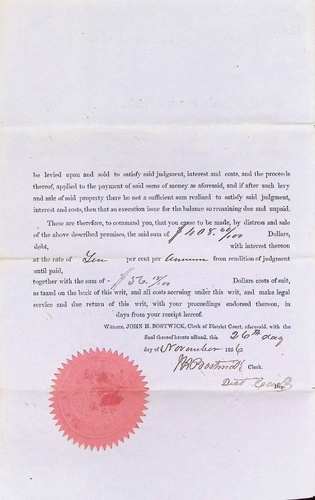 be levied upon and sold to satisfy said judgment, interest and costs, and the proceeds
thereof, applied to the payment of said sums of money as aforesaid, and if after such levy
and sale of said property there be not a sufficient sum realized to satisfy said judgment,
interest and costs, then that an execution issue for the balance so remaining due and unpaid.
These are therefore, to command you, that you cause to be made, by distress and sale
of the above described premises, the said sum of $408. /100 Dollars,
debt, with interest thereon
at the rate of Ten per cent per Annum from rendition of judgment
until paid,
together with the sum of $56. /100 Dollars costs of suit,
as taxed on the back of this writ, and all costs accruing under this writ, and make legal
service and due return of this writ, with your proceedings endorsed thereon, in
days from your receipt hereof.
Witness, JOHN H. BOSTWICK, Clerk of District Court, aforesaid, with the
Seal thereof hereto affixed, this 26th day
day of November 1856
Bostwick Clerk.
Dist